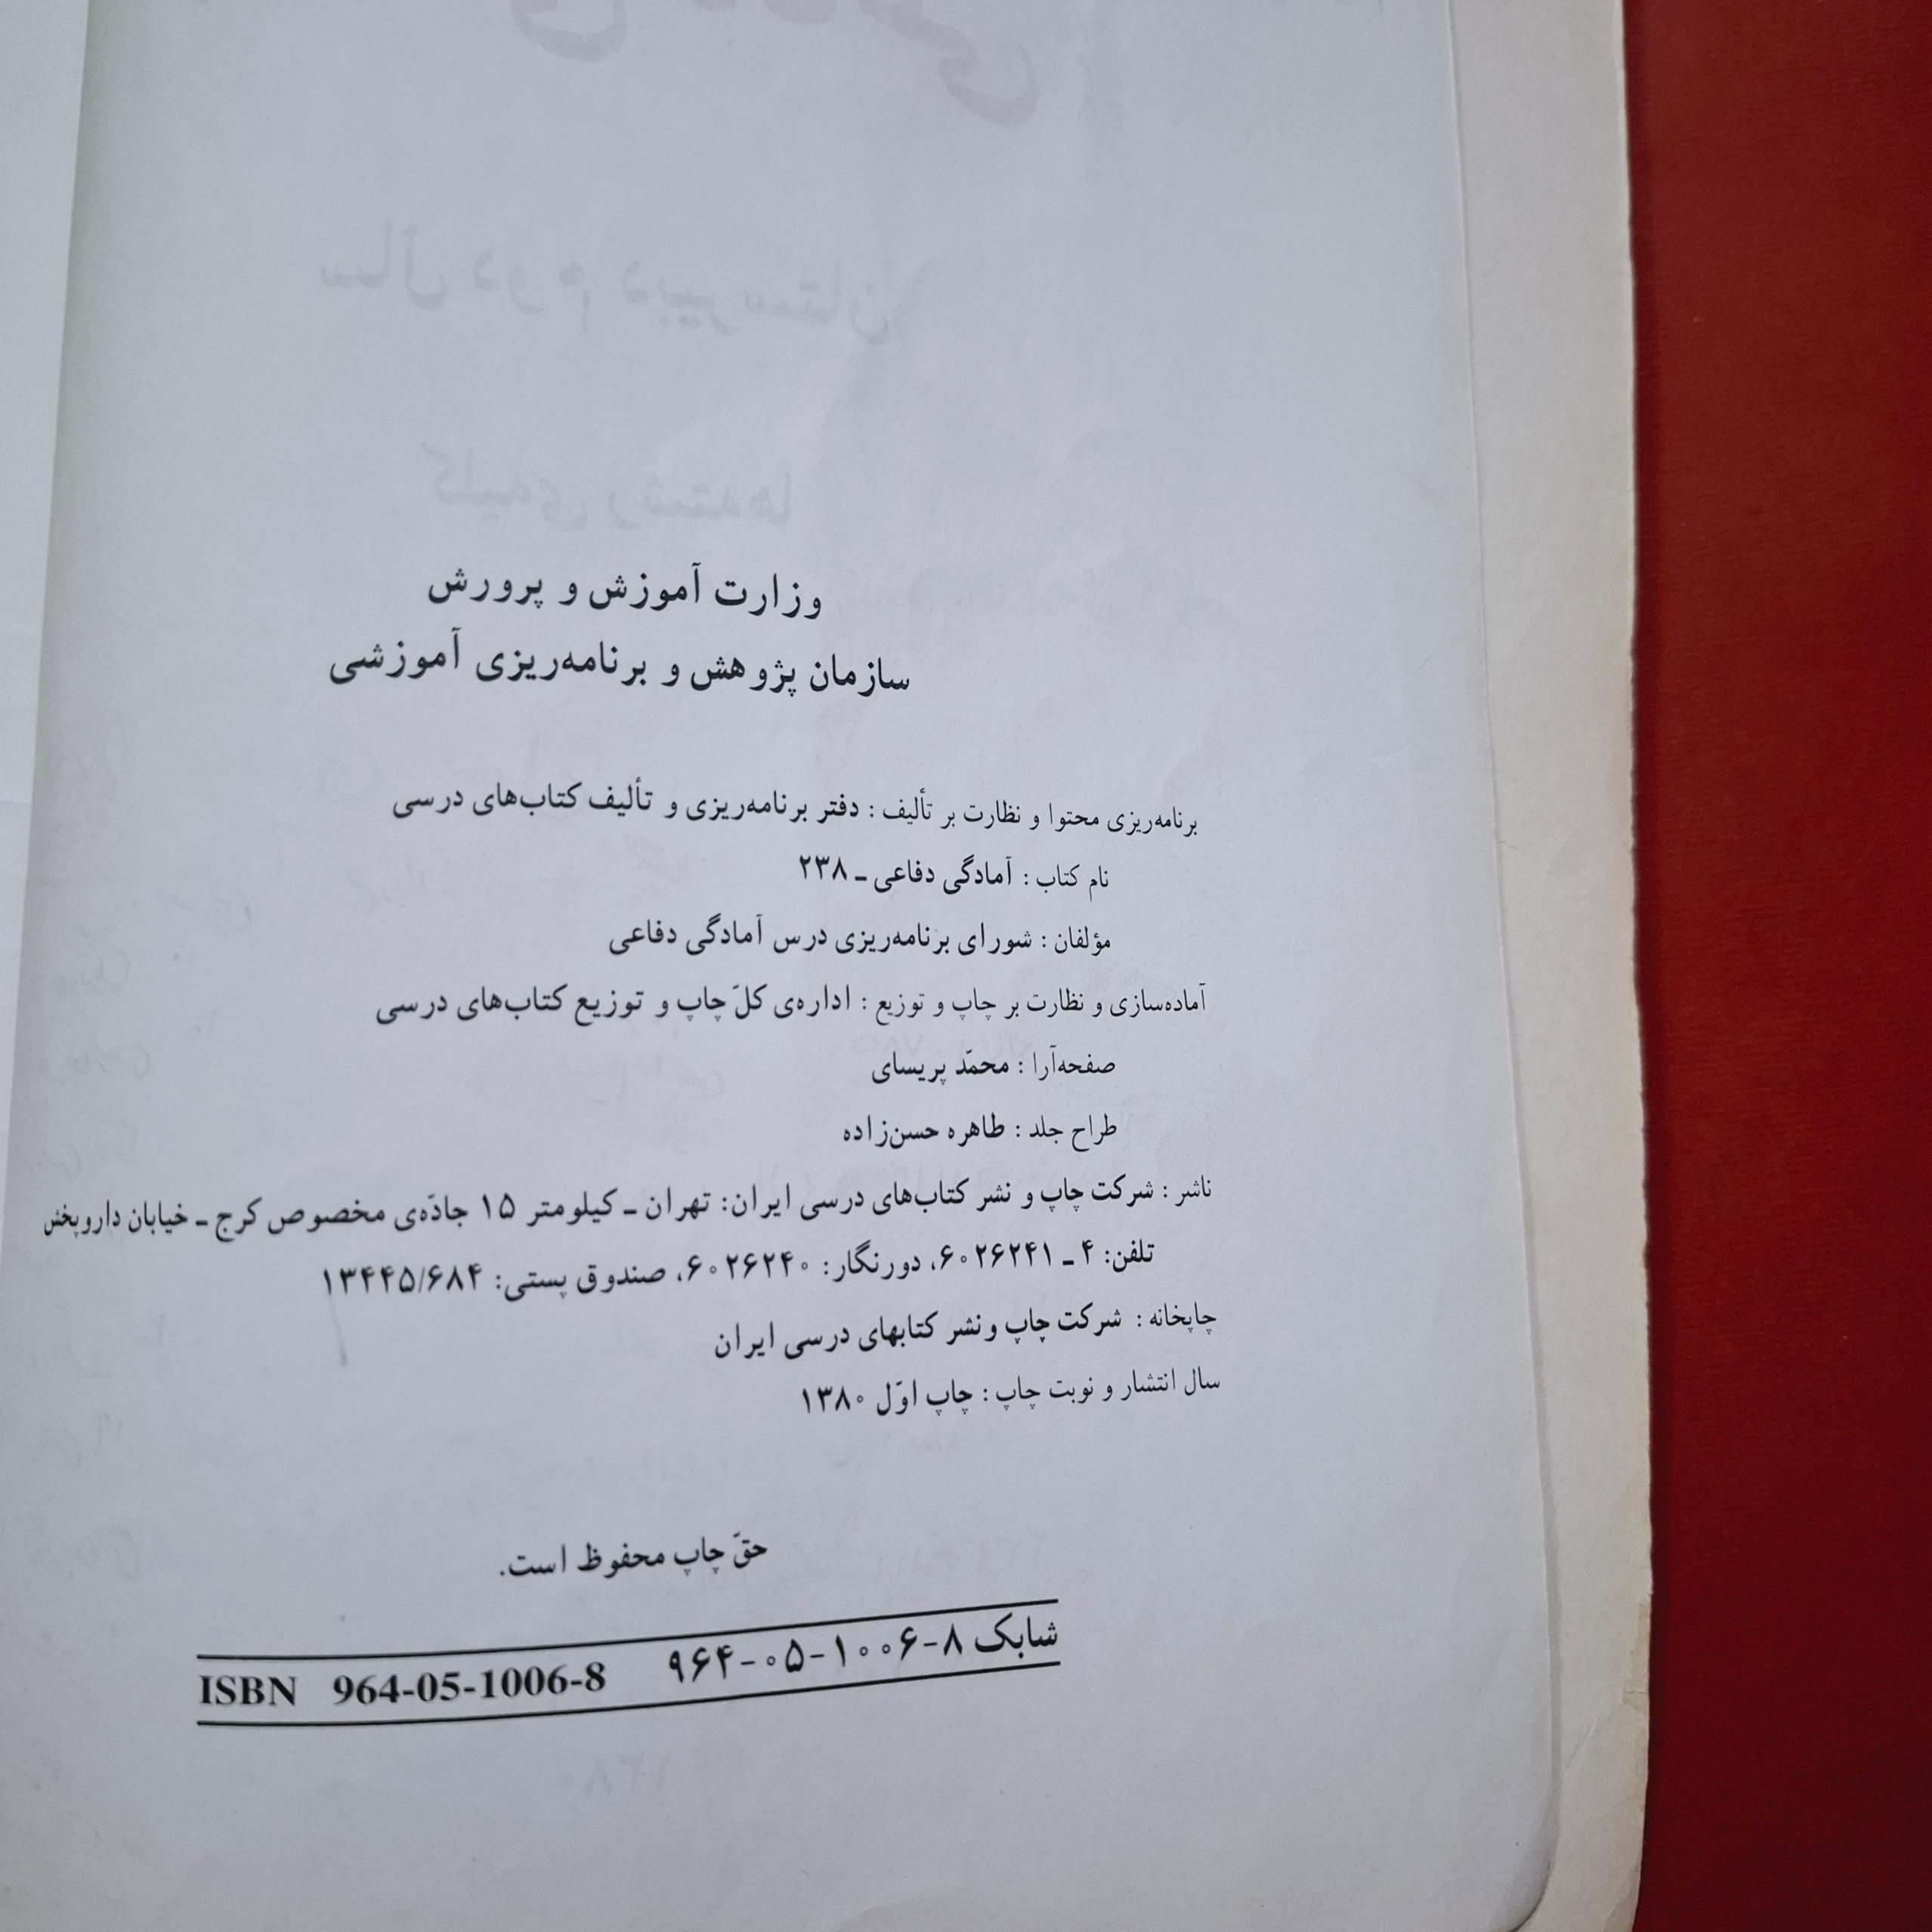 وزارت آموزش و پرورش
سازمان پژوهش و برنامه‌ریزی آموزشی
برنامه‌ریزی محتوا و نظارت بر تألیف : دفتر برنامه‌ریزی و تألیف کتاب‌های درسی
نام کتاب : آمادگی دفاعی ـ ۲۳۸
مؤلفان : شورای برنامه‌ریزی درس آمادگی دفاعی
آماده‌سازی و نظارت بر چاپ و توزیع : اداره‌ی کلّ چاپ و توزیع کتاب‌های درسی
صفحه‌آرا : محمّد پریسای
طراح جلد : طاهره حسن‌زاده
ناشر : شرکت چاپ و نشر کتاب‌های درسی ایران: تهران ـ کیلومتر ۱۵ جادّه‌ی مخصوص کرج ـ خیابان داروپخش
تلفن: ۴ ـ ۶۰۲۶۲۴۱، دورنگار: ۶۰۲۶۲۴۰، صندوق پستی: ۱۳۴۴۵/۶۸۴
چاپخانه : شرکت چاپ و نشر کتابهای درسی ایران
سال انتشار و نوبت چاپ : چاپ اوّل ۱۳۸۰
حقّ چاپ محفوظ است.
شابک ۸-۱۰۰۶-۰۵-۹۶۴ ISBN 964-05-1006-8